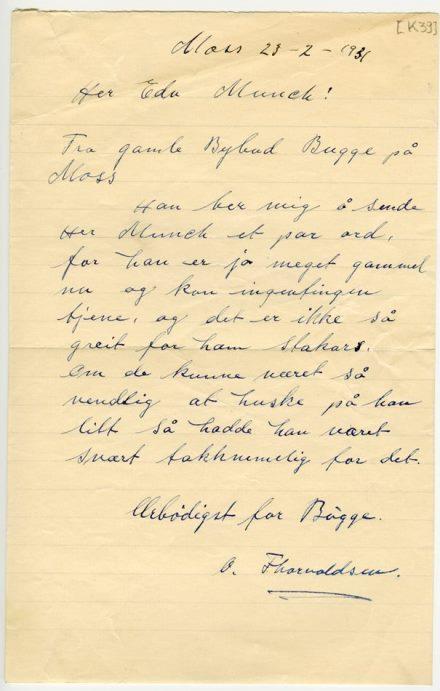 [K39]
Moss 23-2-1931
Her Edv Munch!
Fra gamle Bybud Bugge på
Moss
Han ber mig å sende
Her Munch et par ord,
for han er jo meget gammel
nu og kan ingenfingen
tjene, og det er ikke så
greit for ham stakars.
Om de kunne været så
vendlig at huske på han
litt så hadde han været
svært takknemelig for det.
Ærbødigst for Bugge.
O. Thorvaldsen.